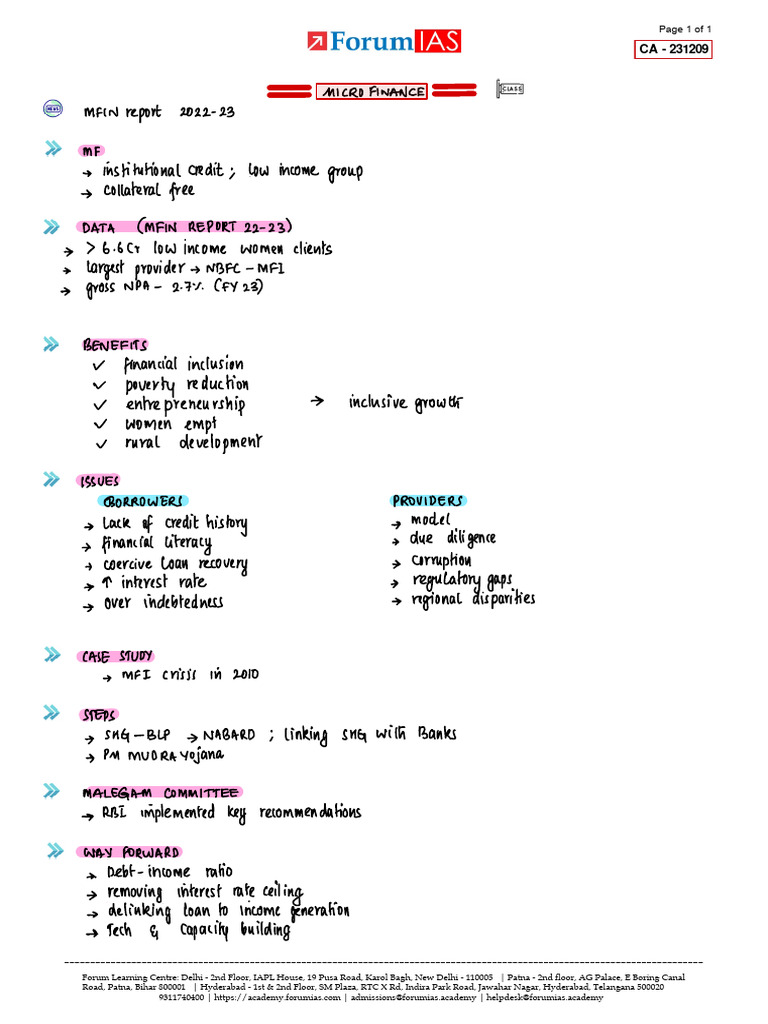 Forum IAS
Page 1 of 1
CA - 231209
MICRO FINANCE
CLASS
NEWS
MFIN report 2022-23
MF
→ institutional credit ; low income group
→ collateral free
DATA (MFIN REPORT 22-23)
→ > 6.6Cr low income women clients
→ largest provider → NBFC - MFI
→ gross NPA - 2.7% (FY 23)
BENEFITS
✓ financial inclusion
✓ poverty reduction
✓ entrepreneurship → inclusive growth
✓ women empt
✓ rural development
ISSUES
BORROWERS
→ Lack of credit history
→ financial literacy
→ coercive loan recovery
→ ↑ interest rate
→ over indebtedness
PROVIDERS
→ model
→ due diligence
→ corruption
→ regulatory gaps
→ regional disparities
CASE STUDY
→ MFI crisis in 2010
STEPS
→ SHG-BLP → NABARD ; linking SHG with Banks
→ PM MUDRA Yojana
MALEGAM COMMITTEE
→ RBI implemented key recommendations
WAY FORWARD
→ Debt-income ratio
→ removing interest rate ceiling
→ delinking loan to income generation
→ Tech & Capacity building
Forum Learning Centre: Delhi - 2nd Floor, IAPL House, 19 Pusa Road, Karol Bagh, New Delhi - 110005 | Patna - 2nd floor, AG Palace, E Boring Canal
Road, Patna, Bihar 800001 | Hyderabad - 1st & 2nd Floor, SM Plaza, RTC X Rd, Indira Park Road, Jawahar Nagar, Hyderabad, Telangana 500020
9311740400 | https://academy.forumias.com | admissions@forumias.academy | helpdesk@forumias.academy